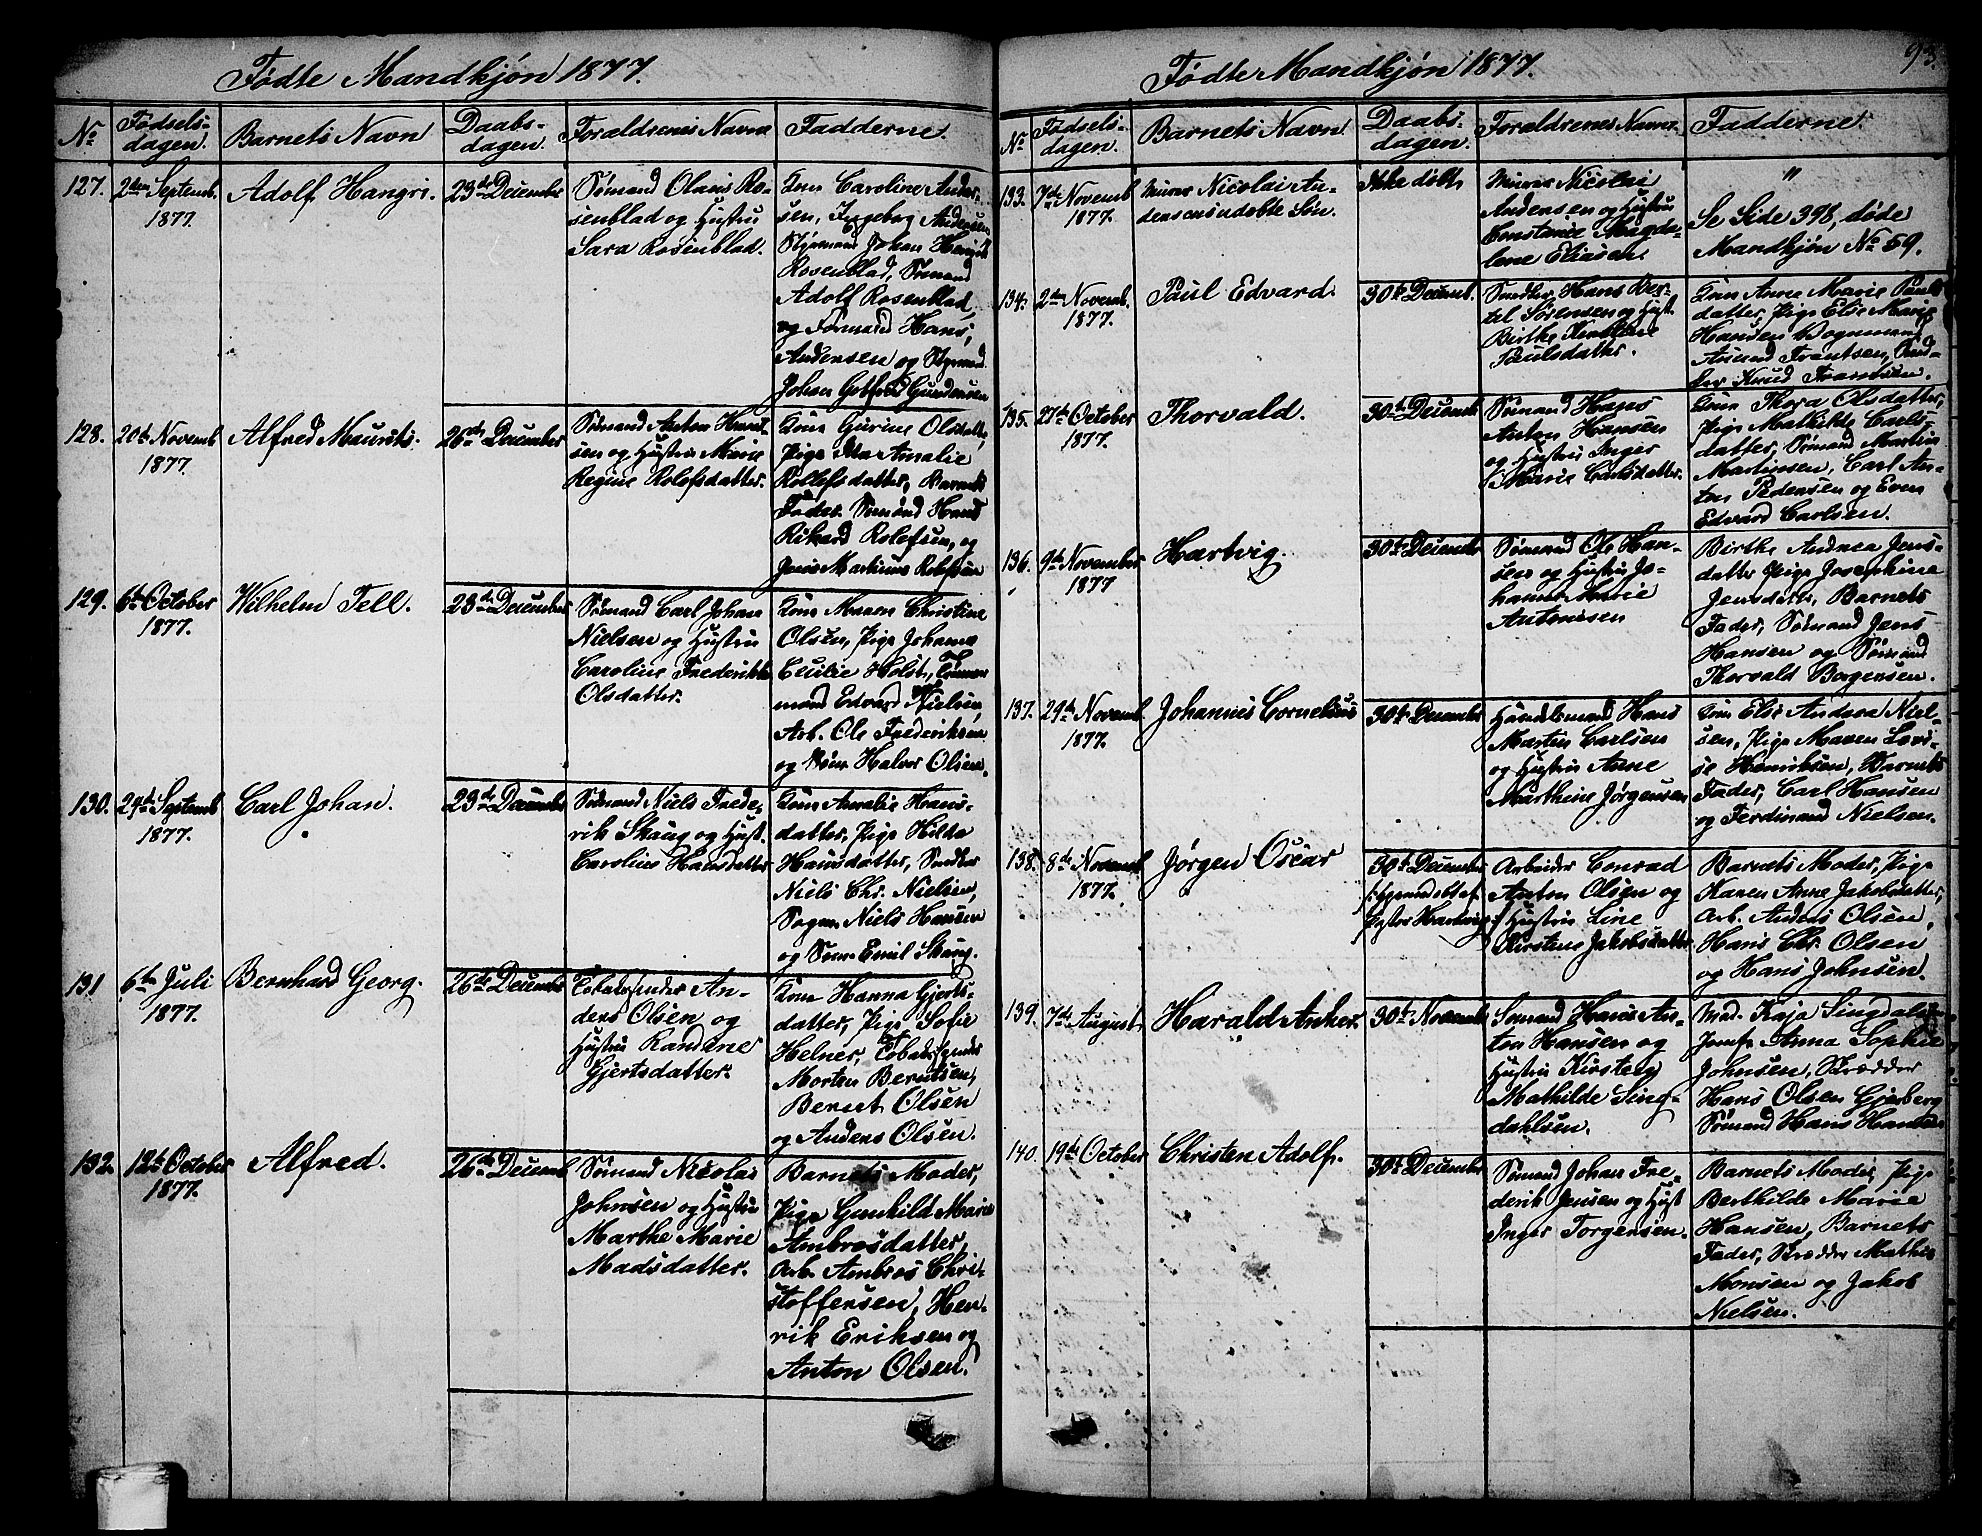 Fødte Mandkjøn 1877.
No
Fødsels-
dagen.
Barnets Navn
Daabs-
dagen.
Forældrenes Navne
Fadderne.
127.
2den Septemb.
1877.
Adolf Hangri.
23de December
Sømand Olaus Ro-
senblad og Hustru
Sara Rosenblad.
Kone Caroline Ander-
sen, Ingeborg Andersen
Styrmand Johan Henrik
Rosenblad, Sømand
Adolf Rosenblad,
og Formand Hans
Andersen og Styrmand
Johan Gotfred Gundersen
128.
20de Novemb.
1877.
Alfred Maurits.
26de December
Sømand Anton
sen og Hustru Marie
Regine Rolefsdatter.
Kone Gurine Olsdatter,
Pige Ida Amalie
Rollefsdatter, Barnets
Fader Sømand Hans
Rikard Rolefsen, og
Martinus Rolefsen
129.
6te October
1877.
Wilhelm Tell.
23de December
Sømand Carl Johan
Nielsen og Hustru
Caroline Frederikke
Olsdatter.
Kone Maren Christine
Olsen, Pige Johanne
Cecilie Holst, Tømmer-
mand Edvard Nielsen,
Arb. Ole Frederiksen
og Halvor Olsen.
130.
29de Septemb
1877.
Carl Johan.
23de December
Sømand Niels Frede-
rik Skaug og Hust.
Caroline Hansdatter
Kone Amalie Hans-
datter, Pige Hilda
Hansdatter, Snedker
Niels Chr. Nielsen,
Niels Hansen
og Sømd. Emil Skaug.
131
6te Juli
1877.
Bernhard Georg.
26de December
Tobaksspinder An-
ders Olsen og
Hustru Randine
Gjertsdatter.
Kone Hanna Gjerts-
datter, Pige Sofie
Helner, Tobaksspinder
Morten Berntsen,
Bernt Olsen
og Anders Olsen.
132.
12te October
1877.
Alfred.
26de Decemb
Sømand Nicolai
Johnsen og Hustru
Marthe Marie
Madsdatter.
Barnets Moder,
Pige Gunhild Marie
Ambrosdatter,
Arb. Ambros Chri-
stoffersen, Hen-
rik Eriksen og
Anton Olsen.
Fødte Mandkjøn 1877.
93.
No
Fødsels-
dagen.
Barnets Navn
Daabs-
dagen.
Forældrenes Navne.
Fadderne.
133.
7de Novemb
1877.
Murer Nicolai An-
dersens udøbte Søn.
Ikke døbt
Murer Nicolai
Andersen og Hustru
Constance Magda-
lene Eliasen.
"
Se Side 398, døde
Mandkjøn No 59.
134.
2den Novemb.
1877.
Paul Edvard.
30te Decemb.
Smed Hans Ber-
tel Sørensen og Hust.
Birthe
Paulsdatter.
Kone Anne Marie Pauls
datter, Pige Elise Marie
Hansen Vognmand
Amund Frantsen, Sned-
ker Knud Frantsen.
135.
27de October
1877.
Thorvald.
30te Decemb
Sømand Hans
Anton Hansen
og Hustru Inger
Marie Carlsdatter.
Kone Thora Olsdatter,
Pige Mathilde Carls-
datter, Sømand Martin
Martinsen, Carl An-
ton Pedersen og Even
Edvard Carlsen.
136.
9de November
1877
Hartvig.
30te December
Sømand Ole Han-
sen og Hustru Jo-
hanne Marie
Antonisen
Birthe Andrea Jens-
datter Pige Josephine
Jensdatter, Barnets
Fader, Sømand Jens
Hansen og Sømand
Thorvald Borgersen.
137.
29de Novemb.
1877.
Johannes Cornelius
30te December
Handelsmand Hans
Martin Carlsen
og Hustru Anne
Marthine Jørgensen
Kone Elise Andrea Niel-
sen, Pige Maren Lovi-
se Henriksen, Barnets
Fader, Carl Hansen
og Ferdinand Nielsen.
138.
8de Novemb
1877.
Jørgen Oscar
30te December
hjemmedøbt af
Pastor Hartvig
Arbeider Conrad
Anton Olsen og
Hustru Line
Kirstine Jakobsdatter
Barnets Moder, Pige
Karen Anne Jakobsdatter,
Arb. Anders Olsen,
Hans Chr. Olsen
og Hans Johnsen.
139.
7de August
Harald Anker.
30te Novemb
Sømand Hans An-
ton Hansen og
Hustru Kirsten
Mathilde Sing-
dahlsen.
Mad. Kaja Singdalsen
Jomfr. Anna Sophie
Johnsen, Skrædder
Hans Olsen Gjerberg
Sømand Hans Hansen
140.
19de October
Christen Adolf.
30te December
Sømand Johan Fre-
derik Jensen og Hust
Inger Torgersen.
Barnets Moder, Pige
Berthilde Marie
Hansen, Barnets
Fader, Skrædder Mathis
Monsen og Jakob
Nielsen.